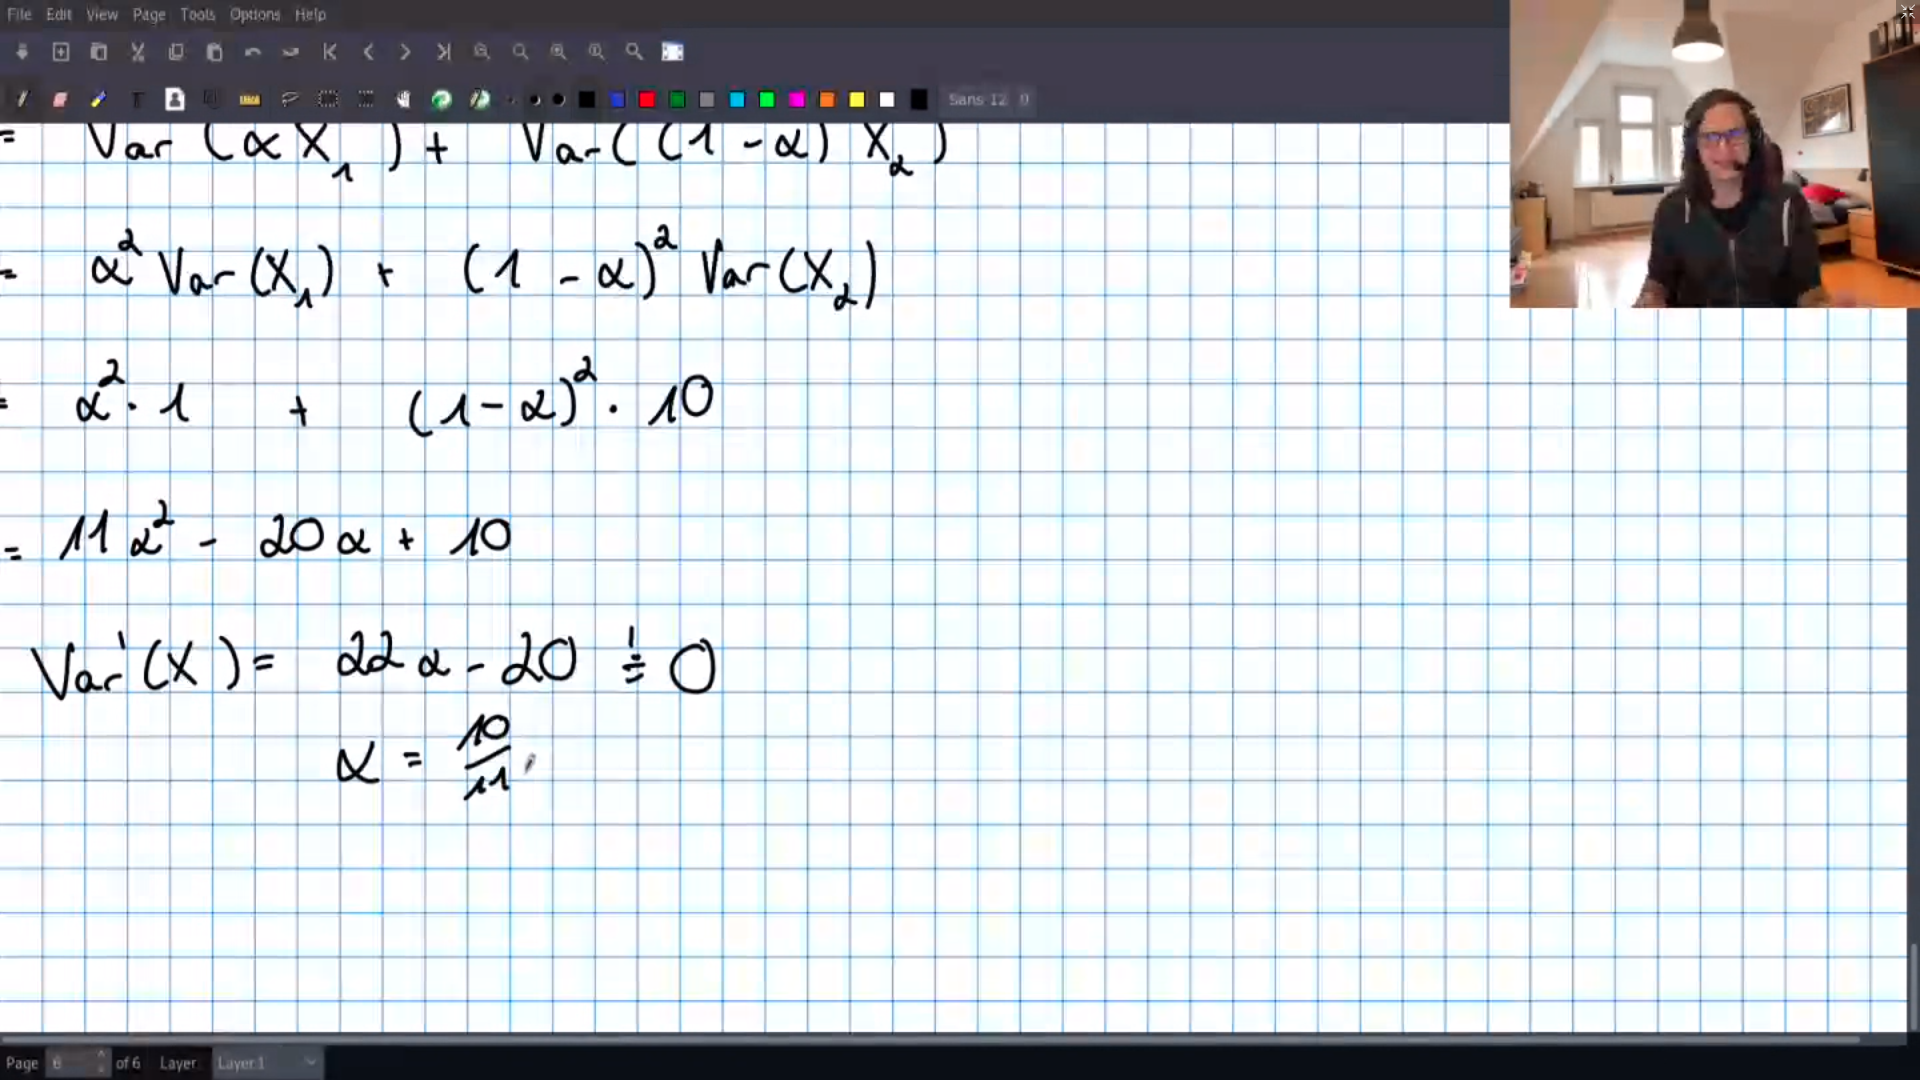 File Edit View Page Tools Options Help
Sans 12
= Var (α X₁) + Var((1 - α) X₂)
= α² Var(X₁) + (1 - α)² Var(X₂)
= α² · 1 + (1 - α)² · 10
= 11α² - 20α + 10
Var'(X) = 22α - 20 != 0
α = 10/11
Page 6 of 6 Layer Layer 1